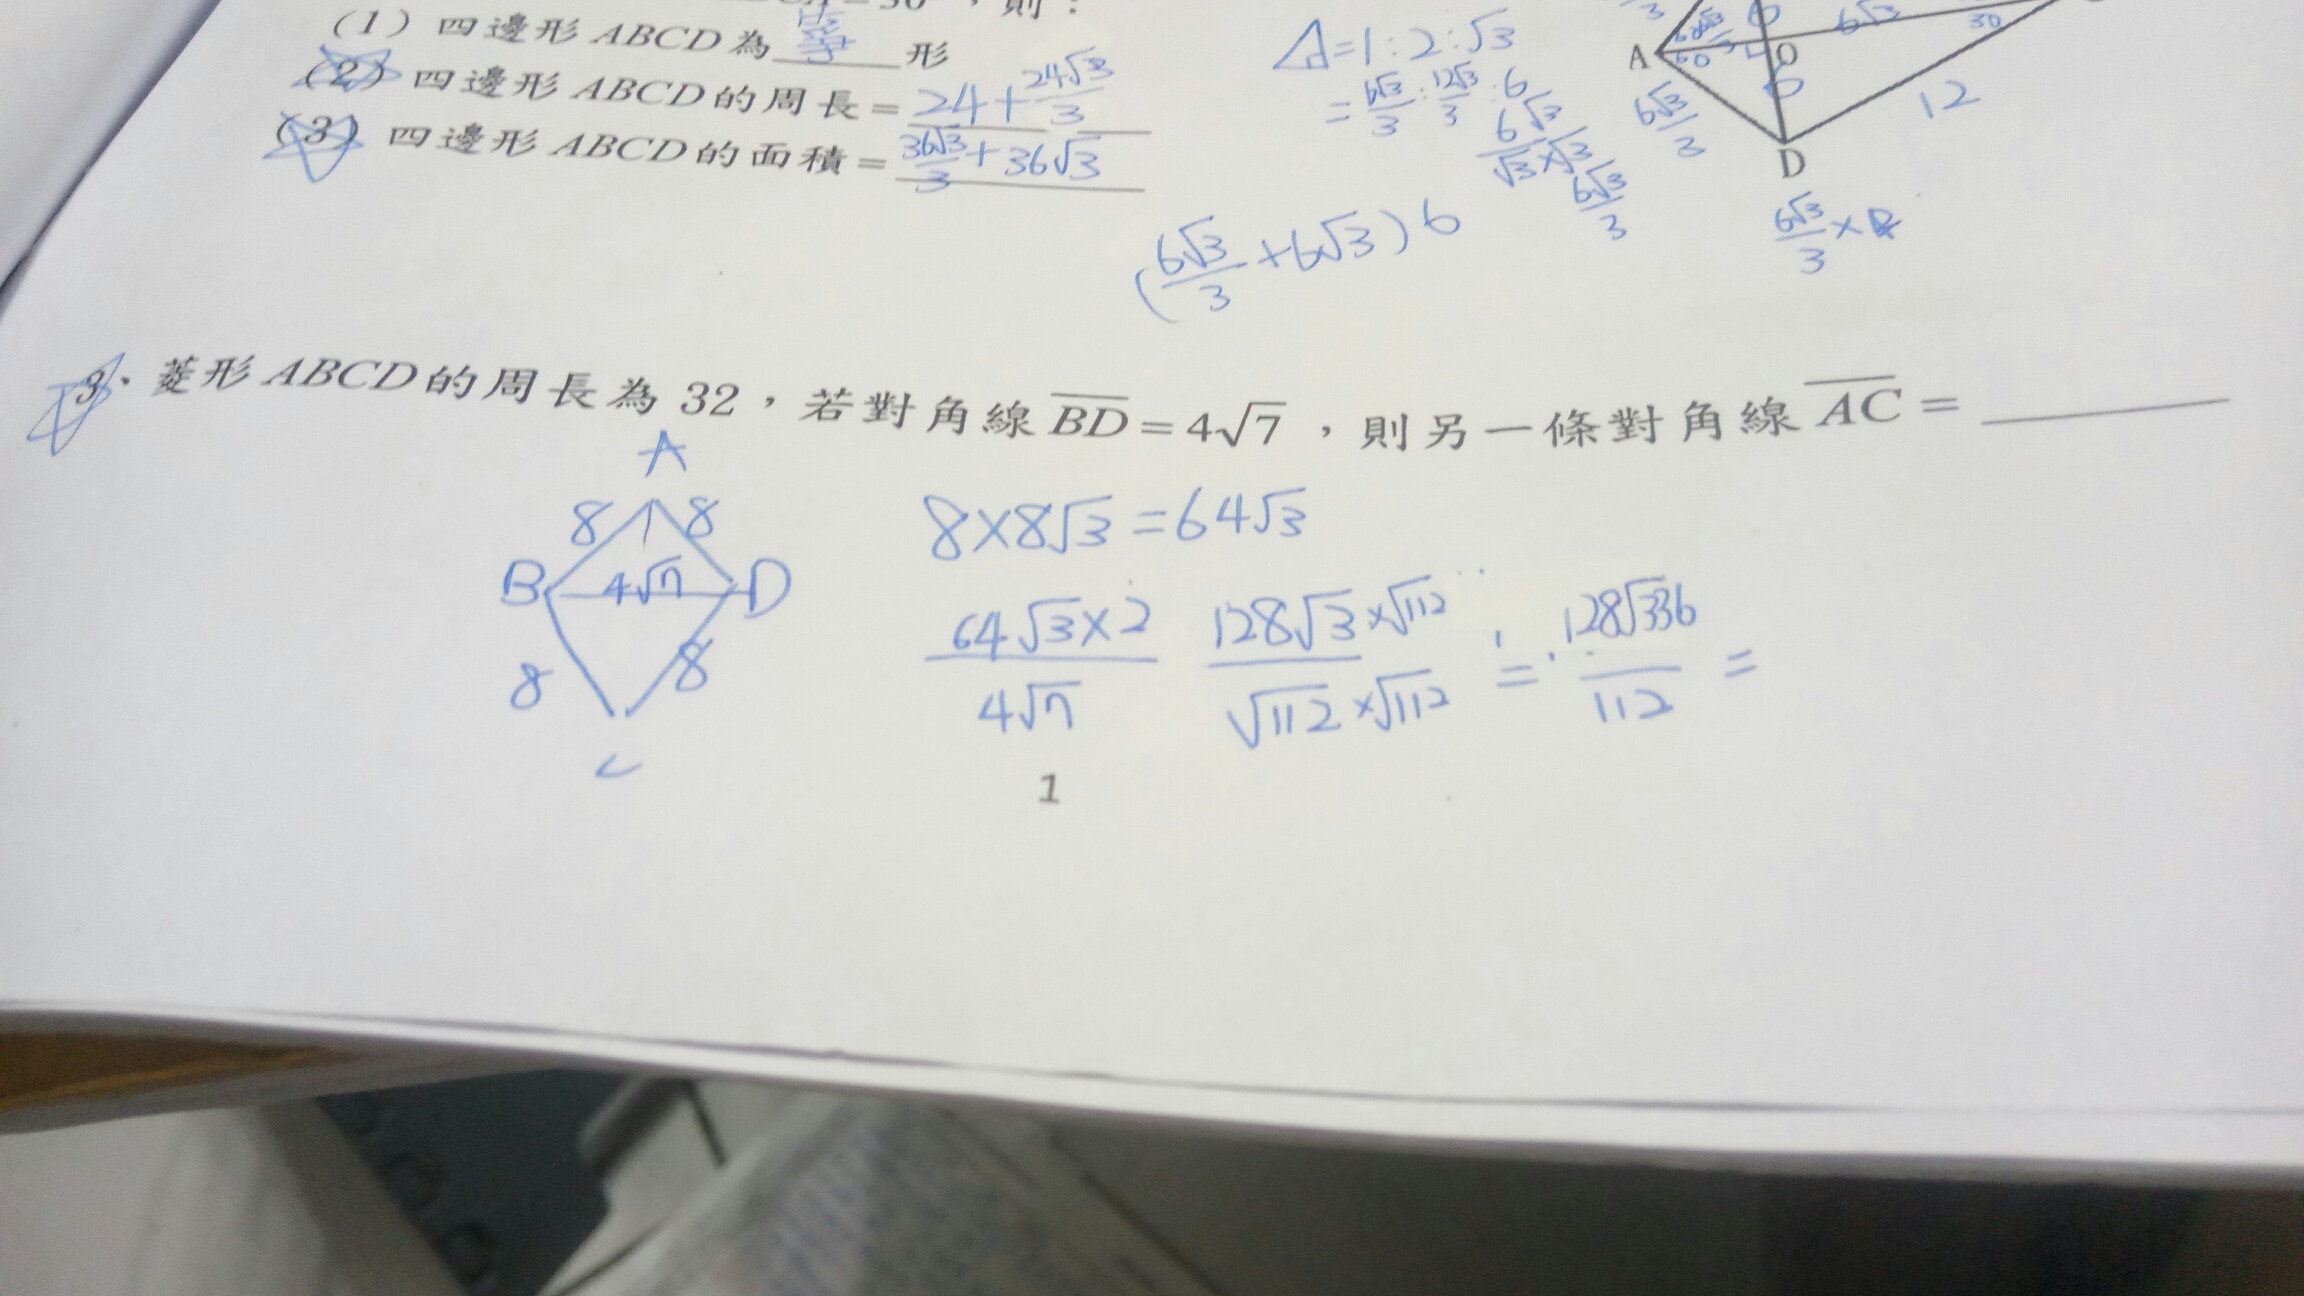 ，則：
(1) 四邊形 ABCD 為 箏 形
(2) 四邊形 ABCD 的周長 = 24+24√3/3
(3) 四邊形 ABCD 的面積 = 36√3/3+36√3
=1:2:√3
=6√3/3:12√3/3:6
6√3
√3×√3
6√3/3
(6√3/3+6√3)6
A
O
6√3
30
60
6√3/3
12
D
6√3/3×4
3、菱形 ABCD 的周長為 32，若對角線 BD = 4√7，則另一條對角線 AC =
A
8 8
B 4√7 D
8 8
C
8×8√3=64√3
64√3×2/4√7 128√3×√112/√112×√112 = 128√336/112 =
1